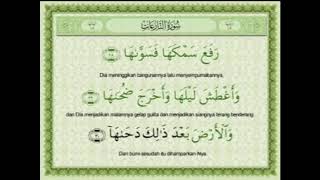 سُورَةُ النَّازِعَاتِ
رَفَعَ سَمْكَهَا فَسَوَّىٰهَا ﴿٢٨﴾
Dia meninggikan bangunannya lalu menyempurnakannya,
وَأَغْطَشَ لَيْلَهَا وَأَخْرَجَ ضُحَىٰهَا ﴿٢٩﴾
dan Dia menjadikan malamnya gelap gulita dan menjadikan siangnya terang benderang
وَالْأَرْضَ بَعْدَ ذَٰلِكَ دَحَىٰهَآ ﴿٣٠﴾
Dan bumi sesudah itu dihamparkan-Nya.